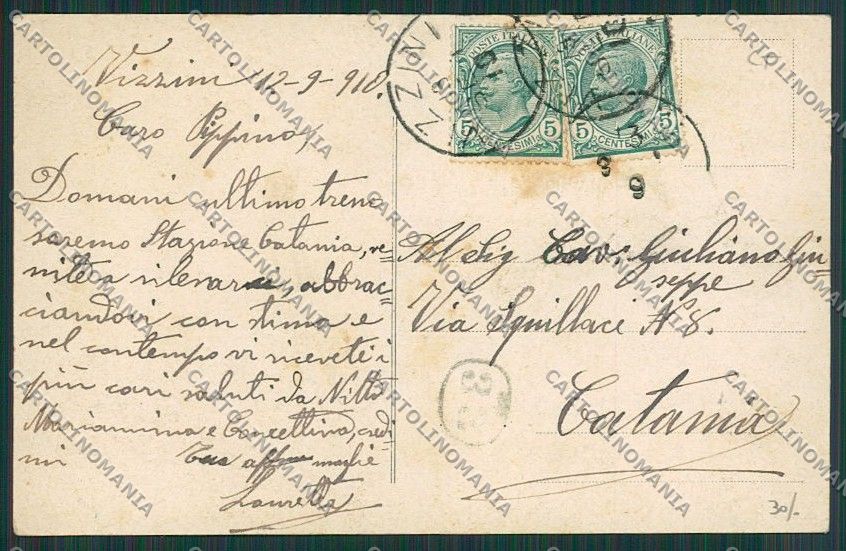 Vizzini 12-9-910.
Caro Pippino,
Domani ultimo treno
saremo Stazione Catania, ve-
nite a rilevarci, abbrac-
ciandovi con stima e
nel contempo vi ricevete i
più cari saluti da Nitto
Mariannina e Concettina, credi
mi Tua affma moglie
Lauretta
POSTE ITALIANE
5 CENTESIMI 5
POSTE ITALIANE
5 CENTESIMI 5
Al Sig Cav: Giuliano Giu-
seppe
Via Squillace N 8.
Catania
30/-
CARTOLINOMANIA